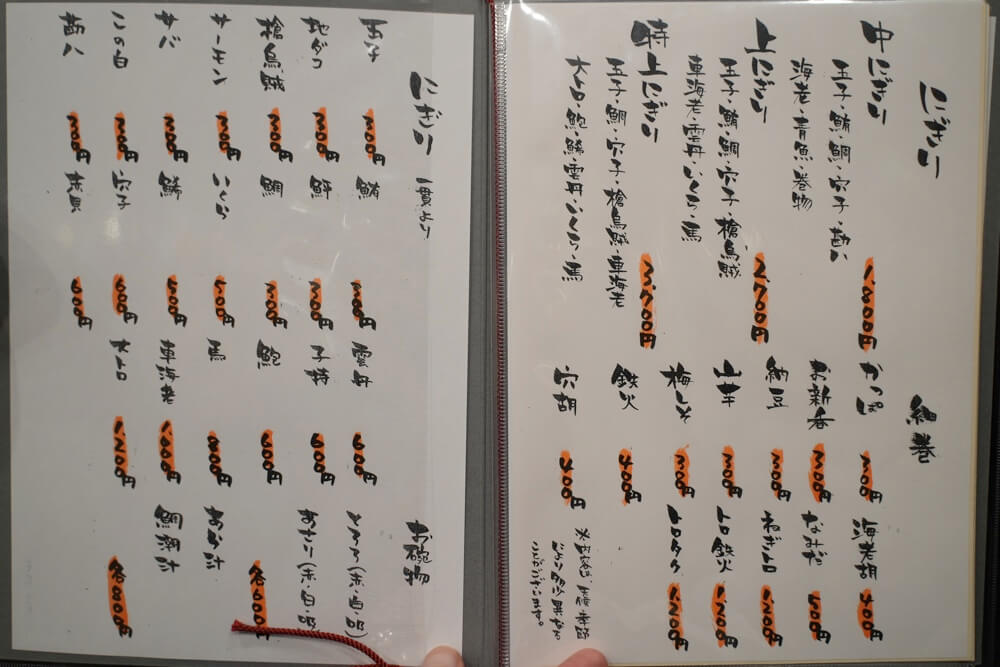 にぎり
中にぎり
玉子・鮪・鯛・穴子・勘八
海老・青魚・巻物
1,800円
上にぎり
玉子・鮪・鯛・穴子・槍烏賊
車海老・雲丹・いくら・馬
2,700円
特上にぎり
玉子・鯛・穴子・槍烏賊・車海老
大トロ・鮑・鰺・雲丹・いくら・馬
3,700円
細巻
かっぱ 300円
お新香 300円
納豆 300円
300円
梅しそ 300円
鉄火 400円
穴胡 400円
海老胡 400円
なみだ 500円
ねぎトロ 1,200円
トロ鉄火 1,200円
トロタク 1,200円
にぎり 一貫より
玉子 300円
地ダコ 300円
槍烏賊 300円
サーモン 300円
サバ 300円
この白 300円
勘八 300円
鮪 300円
鮃 300円
鯛 300円
いくら 500円
鰺 500円
穴子 600円
赤貝 600円
雲丹 600円
子持 600円
鮑 600円
馬 800円
車海老 1,000円
大トロ 1,200円
お碗物
とろろ(赤・白・吸)
あさり(赤・白・吸)
各600円
あら汁
各800円